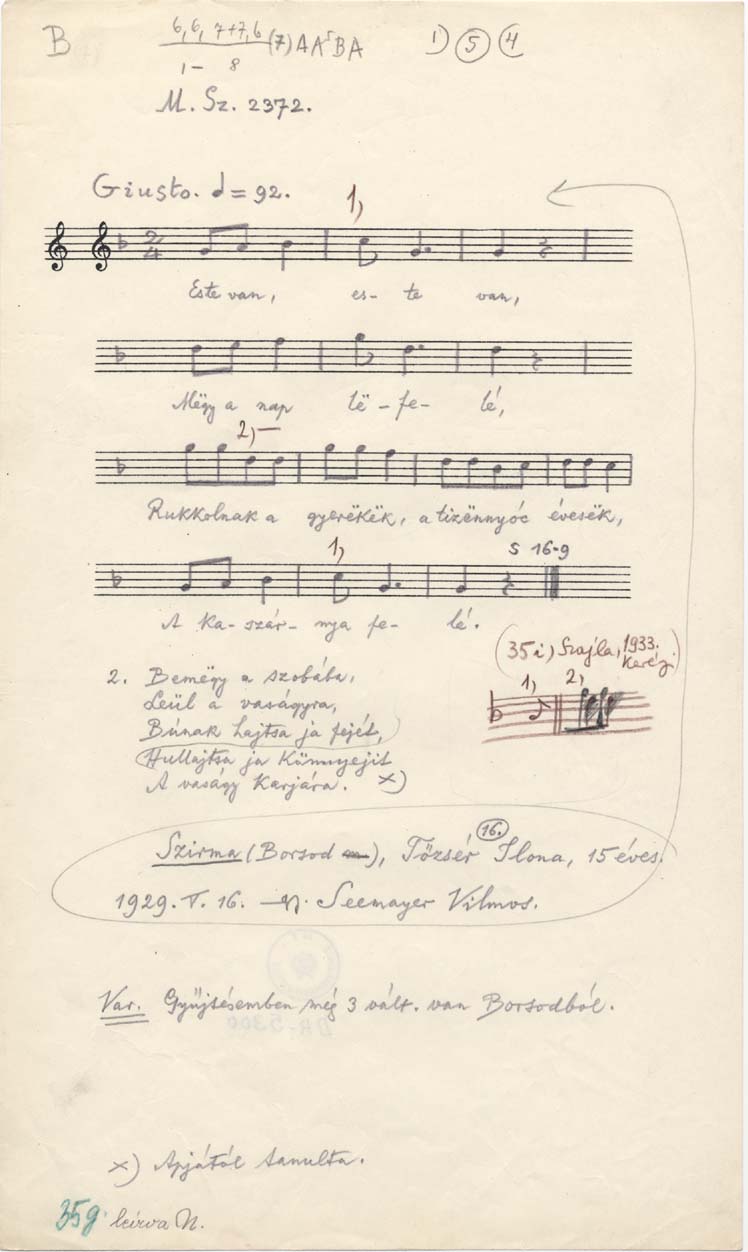 B 6, 6, 7+7, 6 (7) A A⁵ B A 1) ⑤ 4
1 – 8
M. Sz. 2372.
Giusto. = 92.
1,
2/4
Este van, es- te van,
Mëgy a nap lë - fe - lé,
2, —
Rukkolnak a gyerëkëk, a tizënnyóc évesëk,
1, S 16-9
A ka- szár- nya fe- lé.
(35i) Szajla, 1933.
1, 2,
2. Bemëgy a szobába,
Leül a vaságyra,
Búnak hajtsa ja fejét,
Hullajtsa ja könnyejit
A vaságy karjára. x)
16.
Szirma (Borsod), Tőzsér Ilona, 15 éves.
1929. V. 16. Seemayer Vilmos.
Var. Gyűjtésemben még 3 vált. van Borsodból.
x) Apjától tanulta.
35g. leírva N.